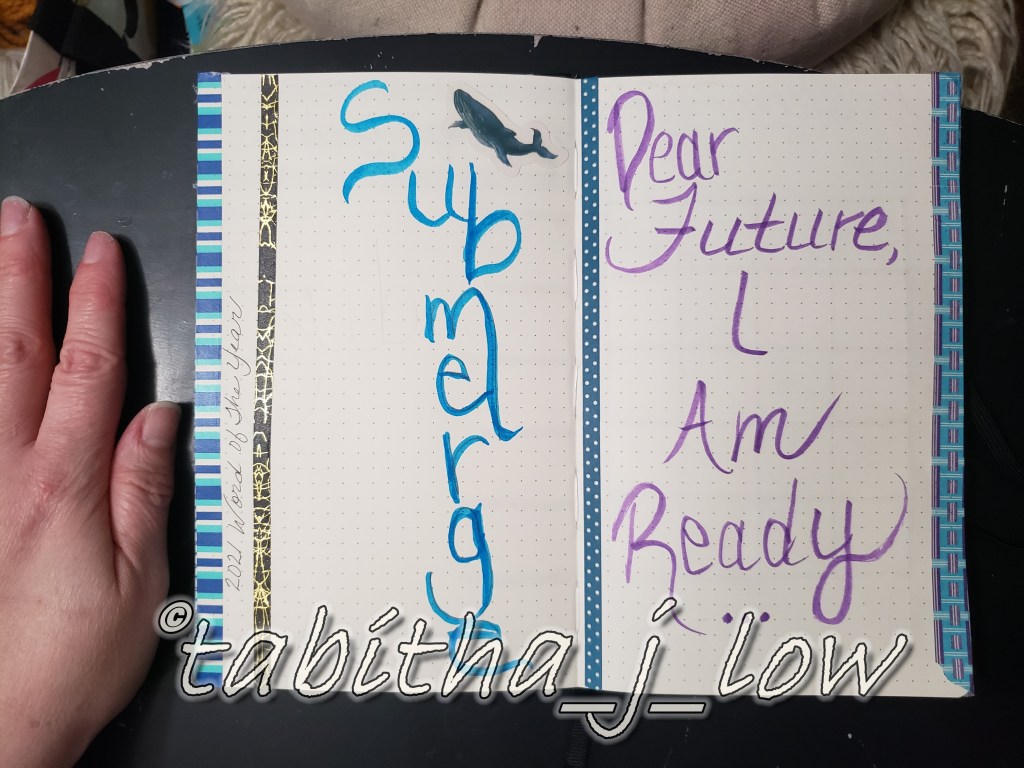 2021 Word Of The Year
Submerge
Dear
Future,
I
Am
Ready
...
©tabitha_j_low